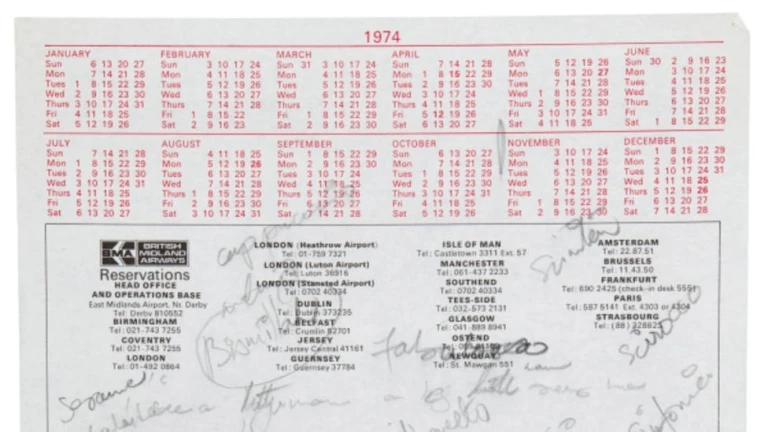 1974
JANUARY
Sun 6 13 20 27
Mon 7 14 21 28
Tues 1 8 15 22 29
Wed 2 9 16 23 30
Thurs 3 10 17 24 31
Fri 4 11 18 25
Sat 5 12 19 26
FEBRUARY
Sun 3 10 17 24
Mon 4 11 18 25
Tues 5 12 19 26
Wed 6 13 20 27
Thurs 7 14 21 28
Fri 1 8 15 22
Sat 2 9 16 23
MARCH
Sun 31 3 10 17 24
Mon 4 11 18 25
Tues 5 12 19 26
Wed 6 13 20 27
Thurs 7 14 21 28
Fri 1 8 15 22 29
Sat 2 9 16 23 30
APRIL
Sun 7 14 21 28
Mon 1 8 15 22 29
Tues 2 9 16 23 30
Wed 3 10 17 24
Thurs 4 11 18 25
Fri 5 12 19 26
Sat 6 13 20 27
MAY
Sun 5 12 19 26
Mon 6 13 20 27
Tues 7 14 21 28
Wed 1 8 15 22 29
Thurs 2 9 16 23 30
Fri 3 10 17 24 31
Sat 4 11 18 25
JUNE
Sun 30 2 9 16 23
Mon 3 10 17 24
Tues 4 11 18 25
Wed 5 12 19 26
Thurs 6 13 20 27
Fri 7 14 21 28
Sat 1 8 15 22 29
JULY
Sun 7 14 21 28
Mon 1 8 15 22 29
Tues 2 9 16 23 30
Wed 3 10 17 24 31
Thurs 4 11 18 25
Fri 5 12 19 26
Sat 6 13 20 27
AUGUST
Sun 4 11 18 25
Mon 5 12 19 26
Tues 6 13 20 27
Wed 7 14 21 28
Thurs 1 8 15 22 29
Fri 2 9 16 23 30
Sat 3 10 17 24 31
SEPTEMBER
Sun 1 8 15 22 29
Mon 2 9 16 23 30
Tues 3 10 17 24
Wed 4 11 18 25
Thurs 5 12 19 26
Fri 6 13 20 27
Sat 7 14 21 28
OCTOBER
Sun 6 13 20 27
Mon 7 14 21 28
Tues 1 8 15 22 29
Wed 2 9 16 23 30
Thurs 3 10 17 24 31
Fri 4 11 18 25
Sat 5 12 19 26
NOVEMBER
Sun 3 10 17 24
Mon 4 11 18 25
Tues 5 12 19 26
Wed 6 13 20 27
Thurs 7 14 21 28
Fri 1 8 15 22 29
Sat 2 9 16 23 30
DECEMBER
Sun 1 8 15 22 29
Mon 2 9 16 23 30
Tues 3 10 17 24 31
Wed 4 11 18 25
Thurs 5 12 19 26
Fri 6 13 20 27
Sat 7 14 21 28
BMA BRITISH MIDLAND AIRWAYS
Reservations
HEAD OFFICE
AND OPERATIONS BASE
East Midlands Airport, Nr. Derby
Tel: Derby 810552
BIRMINGHAM
Tel: 021-743 7255
COVENTRY
Tel: 021-743 7255
LONDON
Tel: 01-492 0864
LONDON (Heathrow Airport)
Tel: 01-759 7321
LONDON (Luton Airport)
Tel: Luton 36916
LONDON (Stansted Airport)
Tel: 0702 40334
DUBLIN
Tel: Dublin 373235
BELFAST
Tel: Crumlin 52701
JERSEY
Tel: Jersey Central 41161
GUERNSEY
Tel: Guernsey 37784
ISLE OF MAN
Tel: Castletown 3311 Ext. 57
MANCHESTER
Tel: 061-437 2233
SOUTHEND
Tel: 0702 40334
TEES-SIDE
Tel: 032-573 2131
GLASGOW
Tel: 041-889 8941
OSTEND
NEWQUAY
Tel: St. Mawgan 551
AMSTERDAM
Tel: 22.87.51
BRUSSELS
Tel: 11.43.50
FRANKFURT
Tel: 690 2425 (check-in desk 555)
PARIS
Tel: 587 5141 Ext. 4303 or 4304
STRASBOURG
Tel: (88)